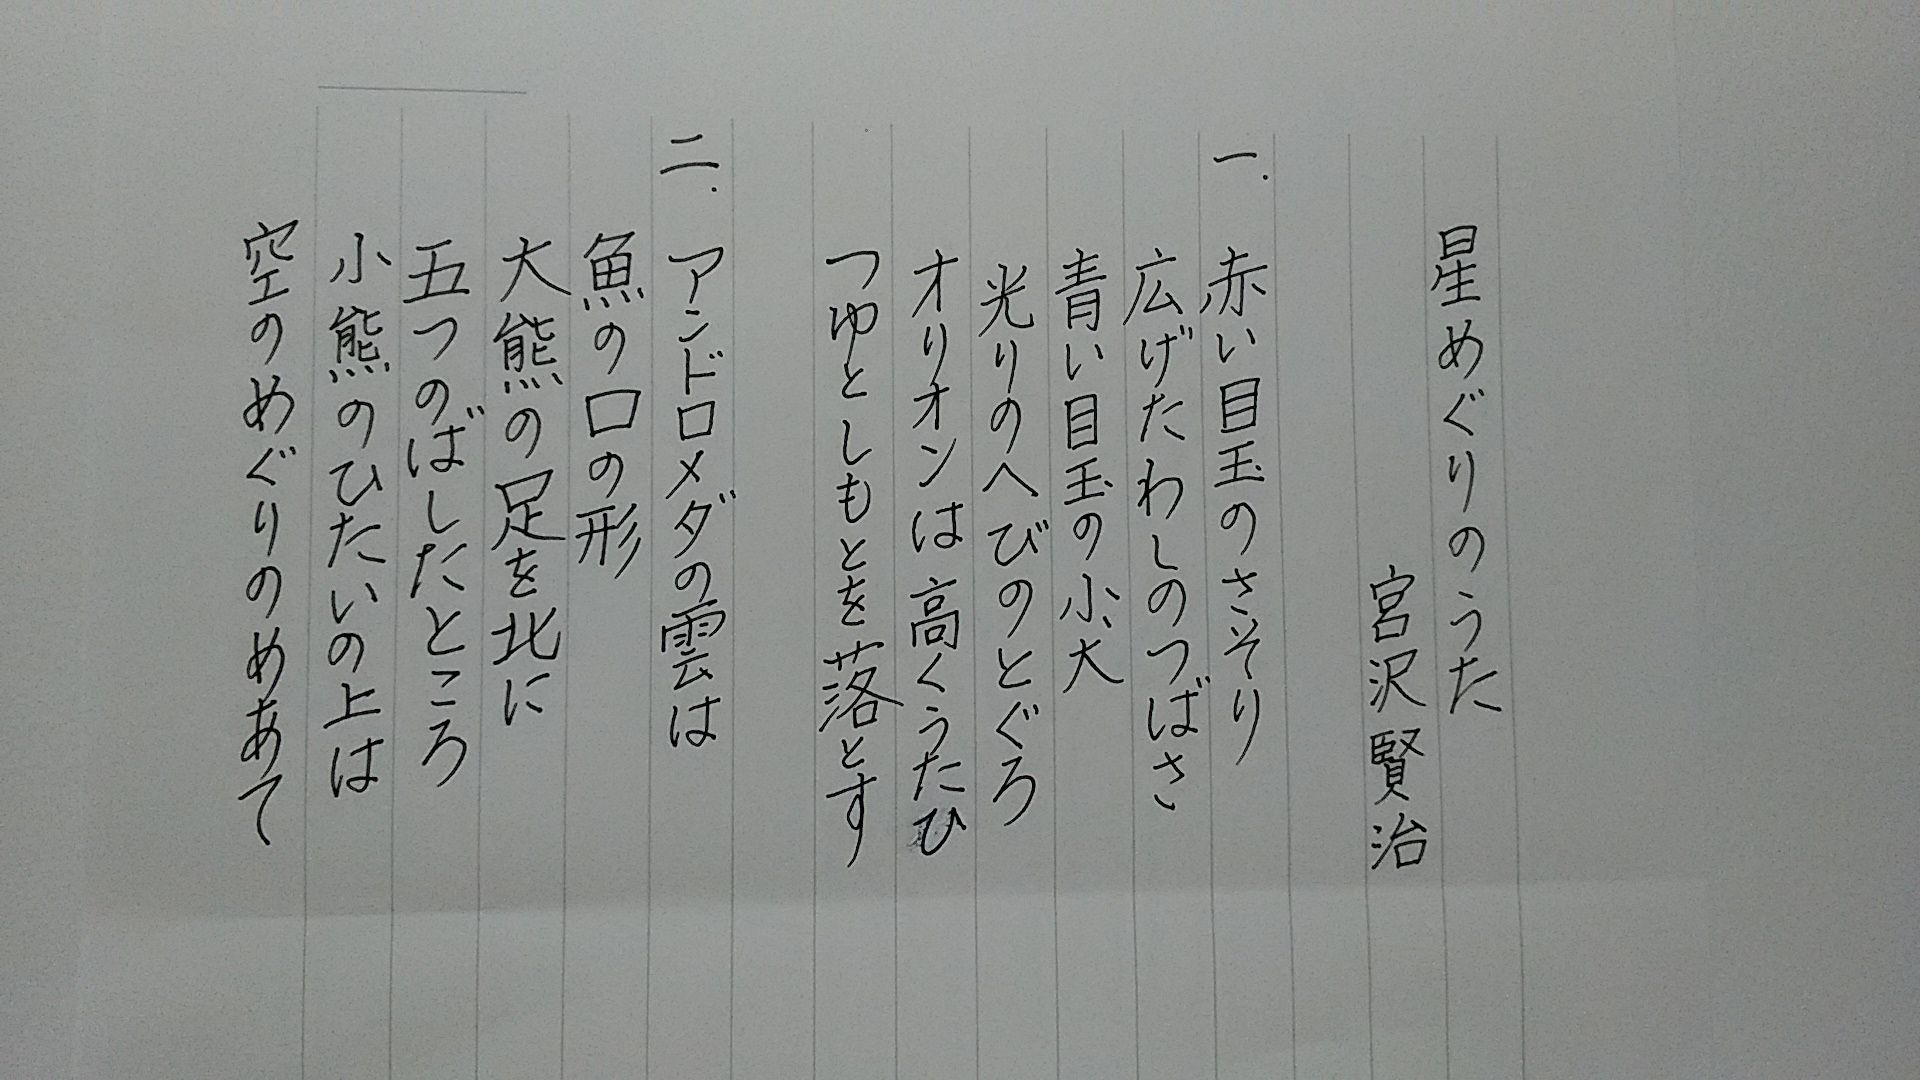 星めぐりのうた
宮沢賢治
一.赤い目玉のさそり
広げたわしのつばさ
青い目玉の小大
光りのへびのとぐろ
オリオンは高くうたひ
つゆとしもとを落とす
二.アンドロメダの雲は
魚の口の形
大熊の足を北に
五つのばしたところ
小熊のひたいの上は
空のめぐりのめあて